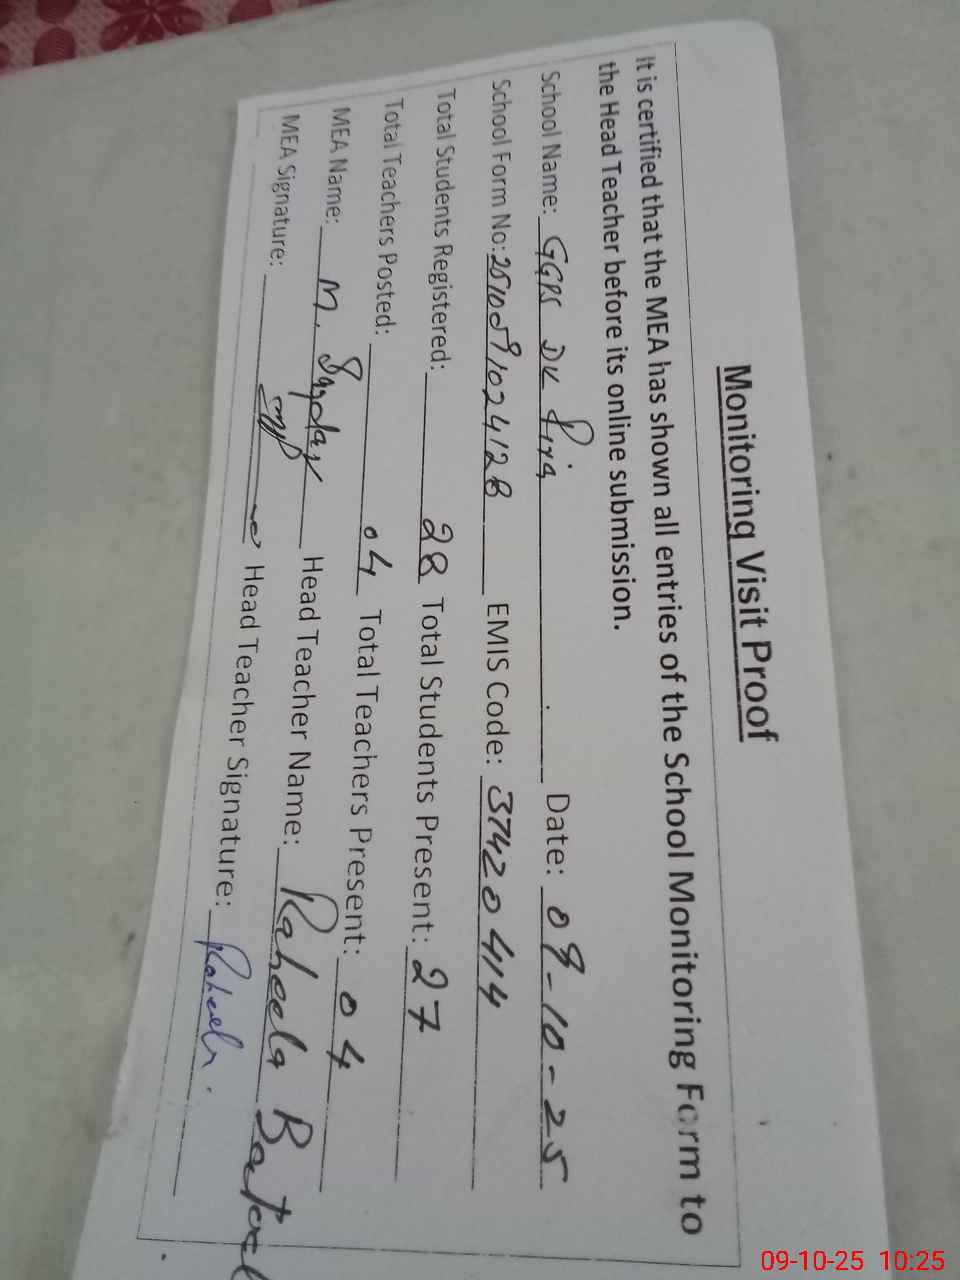 Monitoring Visit Proof
It is certified that the MEA has shown all entries of the School Monitoring Form to
the Head Teacher before its online submission.
School Name: GGPS DK Date: 09-10-25
School Form No: EMIS Code: 37420414
Total Students Registered: 28 Total Students Present: 27
Total Teachers Posted: 04 Total Teachers Present: 04
MEA Name: M. Head Teacher Name: Raheela Batool
MEA Signature: Head Teacher Signature: Raheela.
09-10-25 10:25